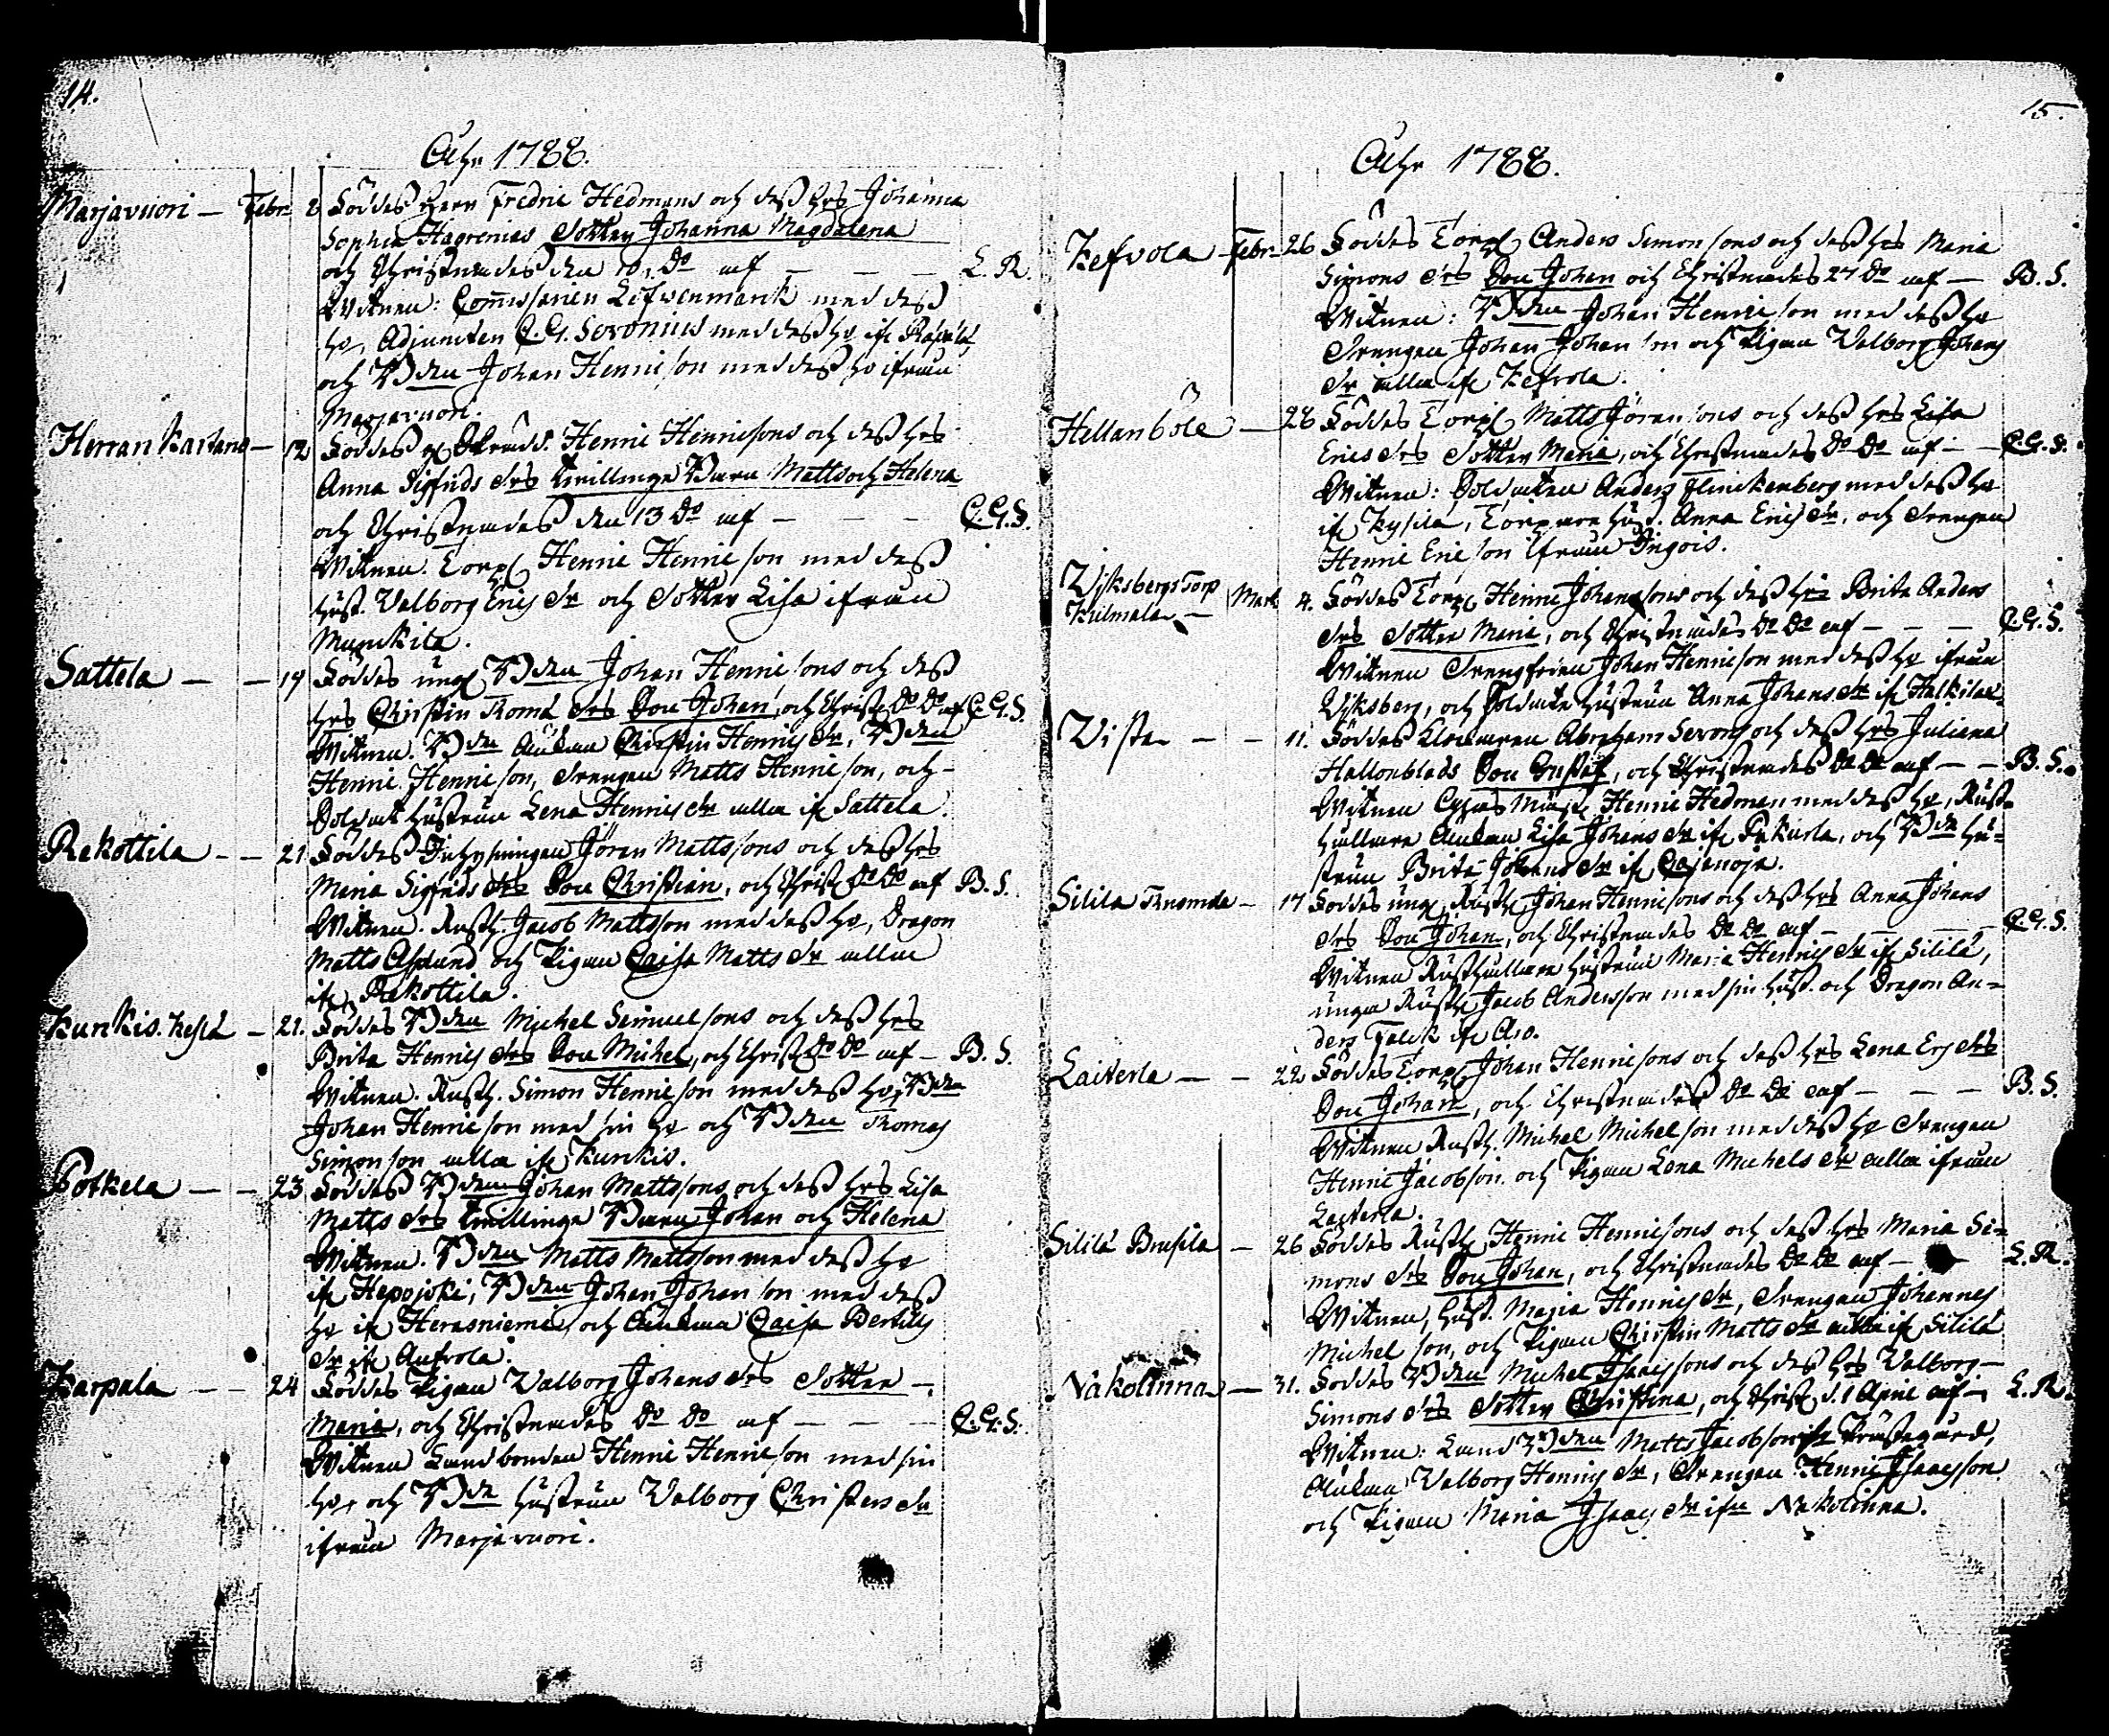 14.
Åhr 1788.
Marjavuori — Febr. 8 Föddes Herr Fredric Hedmans och dess hrs Johanna
Sophia Hagrenias dotter Johanna Magdalena
och Christnades den 10 do af — — — L. R.
Vitnen: Commissarien Löfwenmarck med dess
ho, Adjuncten C. G. Soronius med dess ho
och Bden Johan Henricson med dess ho ifrån
Marjavuori.
Herran Kartano — 12 Föddes Henric Henricsons och dess hrs
Anna Sigfrids drs tvillinge Barn Matts och Helena
och Christnades den 13 do af — — — C. G. S.
Vitnen. Torp. Henric Henricson med dess
hust. Valborg Erics dr och dotter Lisa ifrån
Munckila.
Sattela — — 19 Föddes ung Bden Johan Henricsons och dess
hrs Christin Thomæ drs Son Johan, och Christ. do do af C. G. S.
Vitnen. Bde Änkan Christin Henrics dr, Bden
Henric Henricson, drengen Matts Henricson, och
Soldat hustrun Lena Henrics dr alla if. Sattela.
Rekottila — — 21 Föddes Inhysningen Jöran Mattssons och dess hrs
Maria Sigfrids drs Son Christian, och Christ. do do af B. S.
Vitnen. Rusth. Jacob Mattsson med dess ho, Dragon
Matts Asplund och Pigan Caisa Matts dr alla
if. Rekottila.
Kunkis. — 21. Föddes Bden Michel Simuelsons och dess hrs
Brita Henrics drs Son Michel, och Christ. do do af — B. S.
Vitnen. Rusth. Simon Henricson med dess ho, Bden
Johan Henricson med sin ho och Bden Thomas
Simonson alla if. Kunkis.
Potkela — — 23 Föddes Bden Johan Mattssons och dess hrs Lisa
Matts drs tvillinge Barn Johan och Helena
Vitnen. Bden Matts Mattsson med dess ho
if. Hepojoki, Bden Johan Johanson med dess
ho if. Herasniemi, och Änkan Caisa Bertils
dr if. Aufvola.
Karpala — — 24 Föddes Pigan Valborg Johans drs dotter —
Maria, och Christnades do do af — — — C. G. S.
Vitnen Landbonden Henric Henricson med sin
ho, och Bde hustrun Valborg Christers dr
ifrån Marjavuori.
15.
Åhr 1788.
Kefvola — Febr. 26 Föddes Torp. Anders Simonsons och dess hrs Maria
Simons drs Son Johan och Christnades 27 do af — B. S.
Vitnen: Bden Johan Henricson med dess ho
Drengen Johan Johanson och Pigan Valborg Johans
dr alla if. Kefvola.
Hellanböle — 28 Föddes Torp. Matts Jöransons och dess hrs Lisa
Erics drs dotter Maria, och Christnades do do af — — C. G. S.
Vitnen: Soldaten Anders Flinckenberg med dess ho
if. Kysila, Torpare hust. Anna Erics dr, och drengen
Henric Ericson ifrån Ingois.
Vijksbergs Torp
Kulmala — Mart. 4. Föddes Torp. Henric Johansons och dess hrs Brita Anders
drs dotter Maria, och Christnades do do af — — — C. G. S.
Vitnen Johan Henricson med dess ho ifrån
Vijksberg, och Soldate hustrun Anna Johans dr if. Halkilax.
Vista — — 11. Föddes Klockaren Abraham Serons och dess hrs Juliana
Hallonblads Son Gustaf, och Christnades do do af — — B. S.
Vitnen Henric Hedman med dess ho, Rust-
hållare Änkan Lisa Johans dr if. Pekurla, och Bde hu-
strun Brita Johans dr if. Cajanoja.
Silila Tunonda — 17 Föddes ung Rusth. Johan Henricsons och dess hrs Anna Johans
drs Son Johan, och Christnades do do af — — — C. G. S.
Vitnen Rusthållare hustrun Maria Henrics dr if. Sililä,
unga Rusth. Jacob Andersson med sin hust. och Dragon An-
ders Falck if. Aso.
Laiterla — — 22 Föddes Torp. Johan Henricsons och dess hrs Lena Ers drs
Son Johan, och Christnades do do af — — — B. S.
Vitnen Rusth. Michel Michelson med dess ho drengen
Henric Jacobson och Pigan Lena Michels dr alla ifrån
Laiterla.
Sililä Brusila — 26 Föddes Rusth. Henric Henricsons och dess hrs Maria Si-
mons drs Son Johan, och Christnades do do af — L. R.
Vitnen, hust. Maria Henrics dr, drengen Johannes
Michelson, och Pigan Christin Matts dr alla if. Sililä
Nakolinna — 31. Föddes Bden Michel Isacssons och dess hrs Valborg —
Simons drs dotter Christina, och Christ. d. 1 April af — L. R.
Vitnen: Land Bden Matts Jacobson if. Prästegård,
Änkan Valborg Henrics dr, drengen Henric Isacsson
och Pigan Maria Isacs dr ifrån Nakolinna.